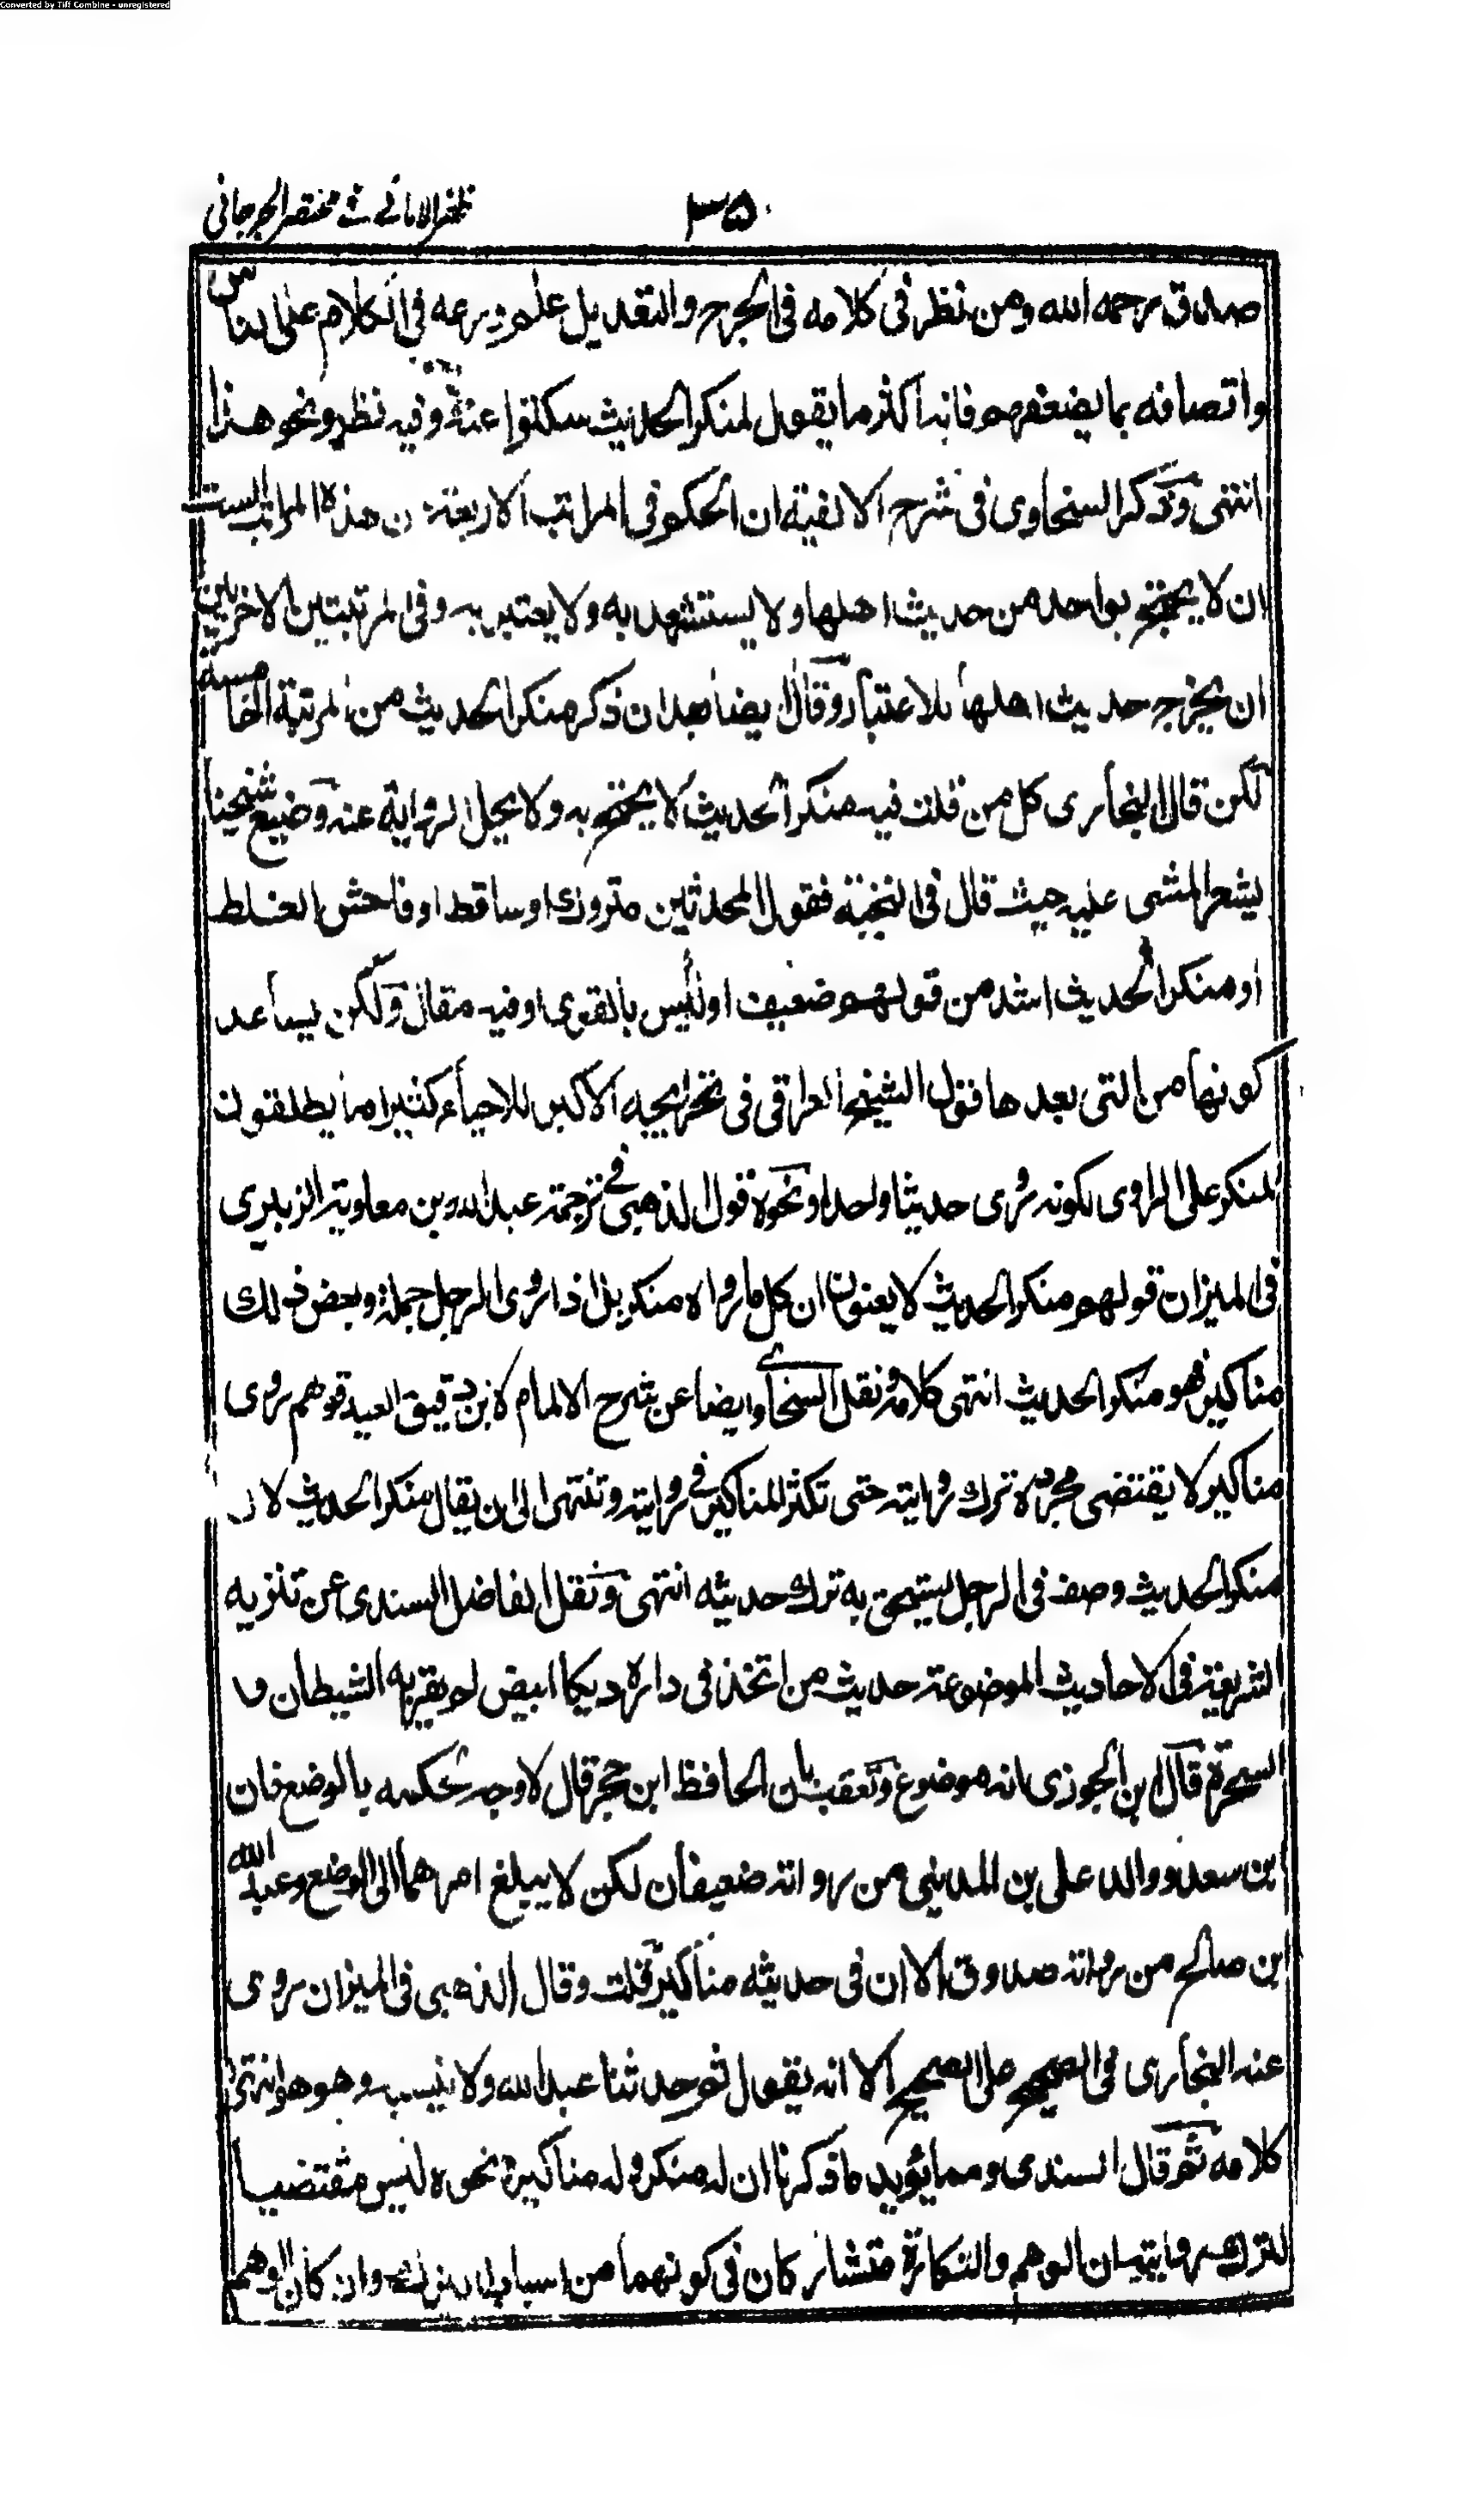 Converted by Tiff Combine - unregistered
ظفر الامانے شے مختصر الجرجانی
۳۵
صدق رحمه الله ومن نظر فی کلامه فی الجرح والتعدیل علم ورعه فی الکلام علی الناس
وانصافه بما یضعفهم فانه اکثر ما یقول لمنکر الحدیث سکتوا عنه وفیه نظر ونحو هذا
انتهی وذکر السخاوی فی شرح الالفیة ان الحکم فی المراتب الاربعة من هذه المراتب الست
ان لا یحتج بواحد من حدیث اهلها ولا یستشهد به ولا یعتبر به وفی المرتبتین الاخریین
ان یخرج حدیث اهلها للاعتبار وقال ایضا بعد ان ذکر منکر الحدیث من المرتبة الخامسة
لکن قال البخاری کل من قلت فیه منکر الحدیث لا یحتج به ولا یحل الروایة عنه وصنیع شیخنا
یشعر المشی علیه حیث قال فی النخبة فقول المحدثین متروك او ساقط او فاحش الغلط
او منکر الحدیث اشد من قولهم ضعیف او لیس بالقوی او فیه مقال ولکن یساعد
کونها من التی بعدها قول الشیخ العراقی فی تخریجه الاکبر للاحیاء کثیرا ما یطلقون
المنکر علی الراوی لکونه روی حدیثا واحدا ونحوه قول الذهبی فی ترجمة عبد الله بن معاویة الزبیری
فی المیزان قولهم منکر الحدیث لا یعنون ان کل ما رواه منکر بل اذا روی الرجل جملة وبعض ذلك
مناکیر فهو منکر الحدیث انتهی کلامه ونقل السخاوی ایضا عن شرح الالمام لابن دقیق العید قولهم روی
مناکیر لا یقتضی بمجرده ترك روایته حتی تکثر المناکیر فی روایته وتنتهی الی ان یقال منکر الحدیث لان
منکر الحدیث وصف فی الرجل یستحق به ترك حدیثه انتهی ونقل الفاضل السندی عن تنزیه
الشریعة فی الاحادیث الموضوعة حدیث من اتخذ فی داره دیکا ابیض لم یقربه الشیطان ولا
السحرة قال ابن الجوزی انه موضوع وتعقب بان الحافظ ابن حجر قال لا وجه لحکمه بالوضع فان
ابن سعد ووالد علی بن المدینی من رواته ضعیفان لکن لا یبلغ امرهما الی الوضع وعبد الله
ابن صالح من رواته صدوق الا ان فی حدیثه مناکیر قلت وقال الذهبی فی المیزان روی
عنه البخاری فی الصحیح علی الصحیح الا انه یقول ثم حدثنا عبد الله ولا ینسبه وهو هو انتهی
کلامه ثم قال السندی ومما یؤید ما ذکرنا ان له منکر وله مناکیر ونحوه لیس مقتضیا
لترك روایته ان الوهم والنکارة متشارکان فی کونهما من اسباب الترك وان کان الوهم